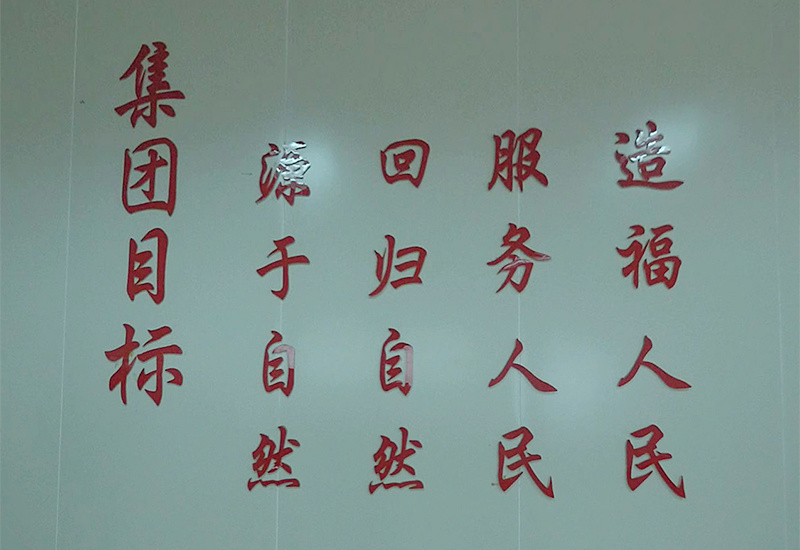 集团目标
源于自然
回归自然
服务人民
造福人民